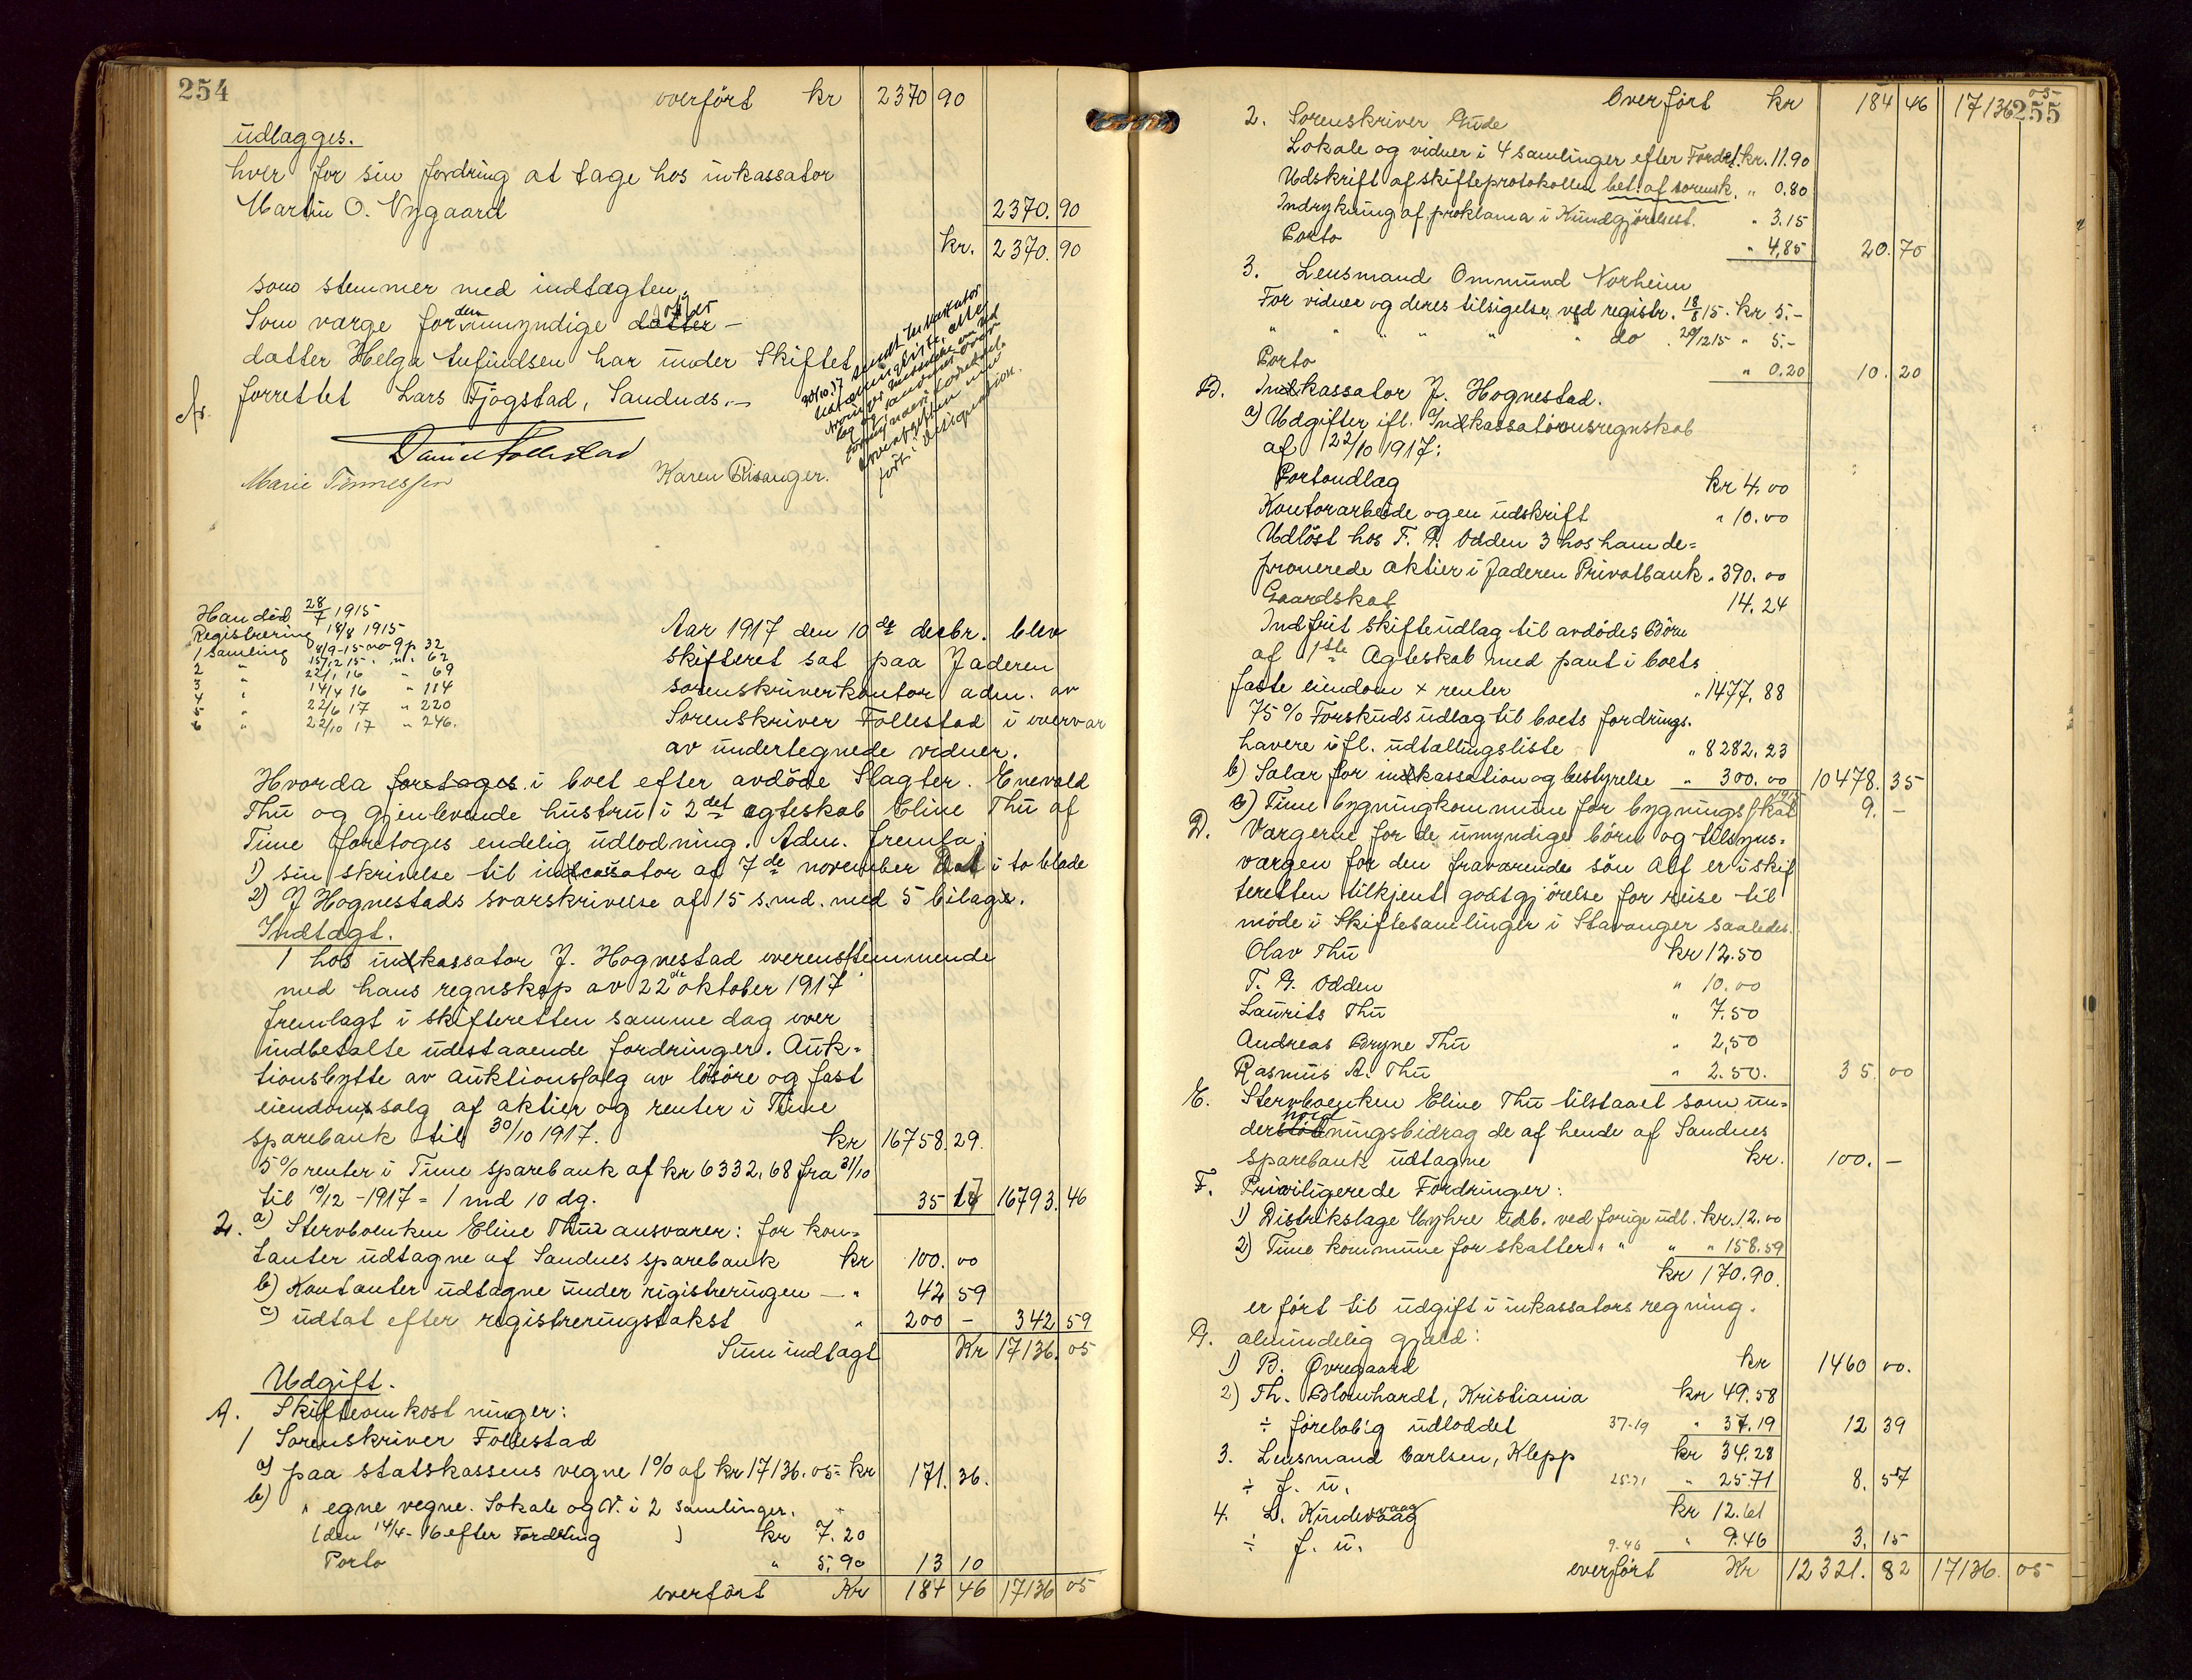 254
overført kr 2370 90
udlægges.
hver for sin fordring at tage hos inkassator
Martin O. Nygaard 2370. 90
kr. 2370. 90
som stemmer med indtægten.
Som værge for den umyndige datter
datter Helga Enfindsen har under Skiftet
forrettet Lars Fjøgstad, Sandnæs.
Daniel Follestad
Marie Tönnessen Karen Risanger.
Han död 28/7 1915
Registrering 18/8 1915
1 samling 8/9-15 no 9 p 32
2 " 15/12 15 " 62
3 " 22/1 16 " 69
4 " 14/4 16 " 114
5 " 22/6 17 " 220
6 " 22/10 17 " 246.
Aar 1917 den 10de decbr. blev
skifteret sat paa Jæderen
sorenskriverkontor adm. av
Sorenskriver Follestad i overvær
av undertegnede vidner.
Hvorda foretoges i boet efter avdöde Slagter Enevald
Thu og gjenlevende hustru i 2det ægteskab Eline Thu af
Time foretoges endelig udlodning. Adm. fremla:
1) sin skrivelse til indkassator af 7de november i to blade
2) J Hognestads svarskrivelse af 15 s.md. med 5 bilage.
Indtægt.
1 hos indkassator J. Hognestad overensstemmende
med hans regnskap av 22de oktober 1917
fremlagt i skifteretten samme dag over
indbetalte udestaaende fordringer. Auk-
tionsbytte av auktionssalg av lösöre og fast
eiendom, salg af aktier og renter i Time
sparebank til 30/10 1917. kr 16758. 29.
5% renter i Time sparebank af kr 6332,68 fra 31/10
til 10/12 - 1917 = 1 md 10 dg. 35 17 16793. 46
2. a) Stervboenken Eline Thu ansvarer: for kon-
tanter udtagne af Sandnes sparebank kr 100. 00
b) Kontanter udtagne under rigistreringen — " 42 59
c) udtat efter registreringstakst " 200 - 342 59
Sum indtægt Kr 17136. 05
Udgift.
A. Skifteomkostninger:
1 Sorenskriver Follestad
a) paa statskassens vegne 1% af kr 17136.05 = kr 171. 36.
b) " egne vegne. Lokale og V. i 2 samlinger.
(den 14/4-16 efter Fordeling ) kr 7.20
Porto " 5,90 13 10
overført Kr 184 46 17136 05
255
Overført kr 184 46 17136 05
2. Sorenskriver Gude
Lokale og vidner i 4 samlinger efter Fordel. kr. 11.90
Udskrift af skifteprotokollen bet. af sorensk. " 0,80
Indrykning af proklama i Kundgjörelsest. " 3.15
Porto " 4,85 20. 70
3. Lensmand Ommund Norheim
For vidner og deres tilsigelse ved registr. 18/8 15. kr 5.-
" " " " " do . 20/12 15 " 5.-
Porto " 0,20 10. 20
B. Indkassator J. Hognestad.
a) Udgifter ifl. Indkassationsregnskab
af 22/10 1917:
Portoudlæg kr 4.00
Kontorarbeide og en udskrift " 10.00
Udlöst hos T. G. Odden 3 hos ham de-
pronerede aktier i Jæderen Privatbank " 390.00
Gaardskat 14.24
Indfrit skifteudlæg til avdödes Börn
af 1ste Ægteskab med pant i boets
faste eiendom + renter " 1477.88
75% Forskudsudlæg til boets fordrings-
havere ifl. udtællingsliste " 8282.23
b) Salær for indkassation og bestyrelse " 300.00 10478. 35
c) Time bygningkommune for bygningsskat 1915 9. -
D. Værgerne for de umyndige börn og tilsyns-
værgen for den fraværende sön Alf er i skif
teretten tilkjent godtgjörelse for reise til
möde i Skiftesamlinger i Stavanger saaledes.
Olav Thu kr 12.50
T. G. Odden " 10.00
Laurits Thu " 7.50
Andreas Bryne Thu " 2,50
Rasmus A. Thu " 2.50. 35. 00
E. Stervboenken Eline Thu tilstaaet som un-
derholdningsbidrag de af hende af Sandnes
sparebank udtagne kr. 100. -
F. Priviligerede Fordringer:
1) Distriktslæge Myhre udb. ved forrige udl. kr. 12.00
2) Time kommune for skatter " " " " 158.59
kr 170.90.
er fört til udgift i inkassators regning.
G. almindelig gjæld:
1) B. Øvregaard kr 1460 00.
2) Th. Blomhardt, Kristiania kr 49.58
÷ foreløbig udloddet 37.19 " 37.19 12 39
3. Lensmand Carlsen, Klepp kr 34.28
÷ f. u. 25.71 " 25.71 8. 57
4. L. Kindervaag kr 12.61
÷ f. u. 9.46 " 9.46 3. 15
overført Kr 12321. 82 17136. 05